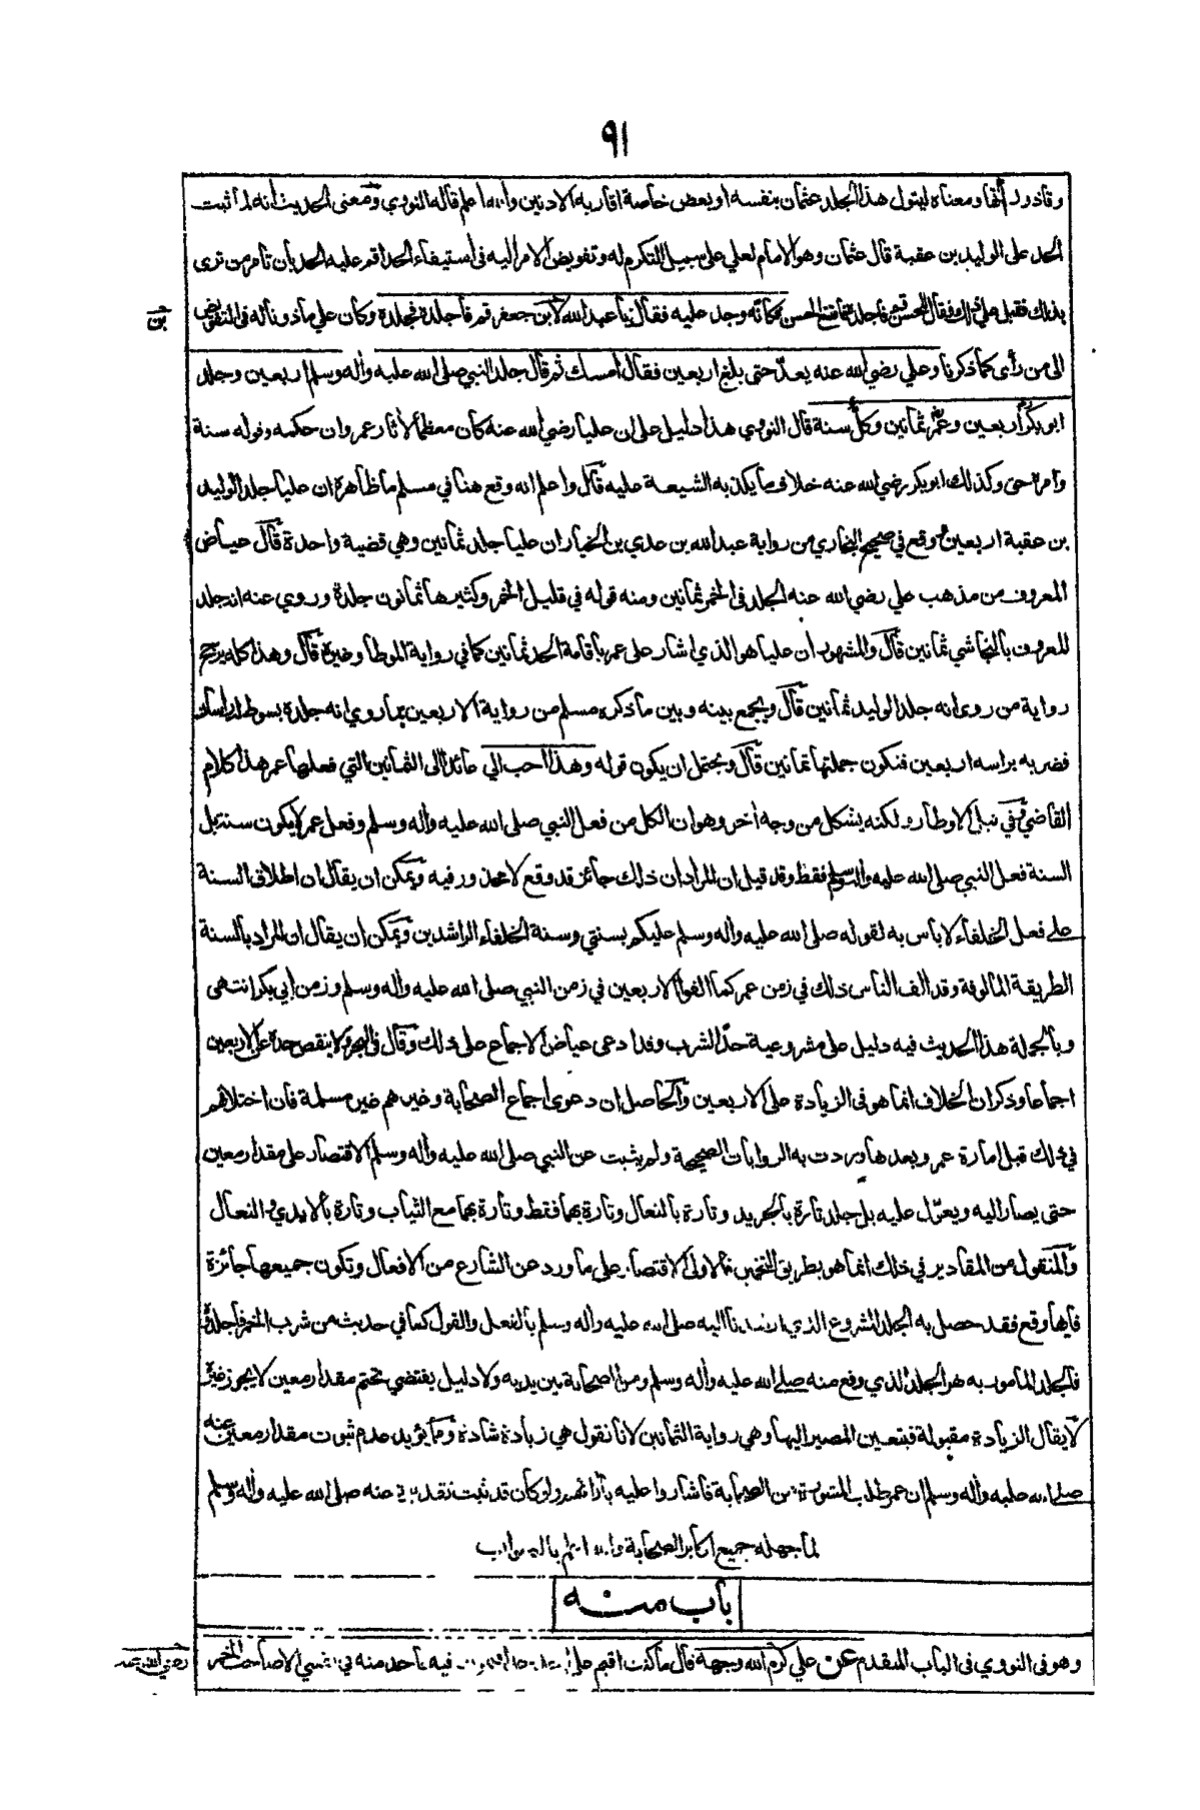 ٩١
وقاذوراتها ومعناه ليتول هذا الجلد عثمان بنفسه او بعض خاصة اقاربه الادنين والله اعلم قاله النووي ومعنى الحديث انه لما ثبت
الحد على الوليد بن عقبة قال عثمان وهو الامام لعلي على سبيل التكرم له وتفويض الامر اليه في استيفاء الحد اقم عليه الحد بان تأمر من ترى
بذلك فقبل علي ذلك فقال للحسن قم فاجلده فامتنع الحسن فكأنه وجد عليه فقال يا عبد الله لابن جعفر قم فاجلده فجلده وكان علي ماذونا له في التفويض
بن
الى من رأى كما ذكرنا وعلي رضي الله عنه يعدّ حتى بلغ اربعين فقال امسك ثم قال جلد النبي صلى الله عليه وأله وسلم اربعين وجلد
ابو بكر أربعين وعمر ثمانين وكلّ سنة قال النووي هذا دليل على ان عليا رضي الله عنه كان معظما لأثار عمر وان حكمه وقوله سنة
وامره حق وكذلك ابو بكر رضي الله عنه خلاف ما يكذبه الشيعة عليه قال واعلم انه وقع هنا في مسلم ما ظاهره ان عليا جلد الوليد
بن عقبة اربعين ووقع في صحيح البخاري من رواية عبد الله بن عدي بن الخيار ان عليا جلد ثمانين وهي قضية واحدة قال عياض
المعروف من مذهب علي رضي الله عنه الجلد في الخمر ثمانين ومنه قوله في قليل الخمر وكثيرها ثمانون جلدة وروي عنه انه جلد
المعروف بالنجاشي ثمانين قال والمشهور أن عليا هو الذي اشار على عمر بأقامة الحد ثمانين كما في رواية الموطأ وغيره قال وهذا كله يرجح
رواية من روى انه جلد الوليد ثمانين قال ويجمع بينه وبين ما ذكره مسلم من رواية الاربعين بما روي انه جلده بسوط له رأسان
فضربه براسه اربعين فتكون جملتها ثمانين قال ويحتمل ان يكون قوله وهذا احب الي عائدا الى الثمانين التي فعلها عمر هذا كلام
القاضي وفي نيل الاوطار ولكنه يشكل من وجه أخر وهو ان الكل من فعل النبي صلى الله عليه وأله وسلم وفعل عمر لا يكون سنة بل
السنة فعل النبي صلى الله عليه وأله وسلم فقط وقد قيل ان المراد ان ذلك جائز قد وقع لا محذور فيه ويمكن ان يقال ان اطلاق السنة
على فعل الخلفاء لا باس به لقوله صلى الله عليه وأله وسلم عليكم بسنتي وسنة الخلفاء الراشدين ويمكن ان يقال ان المراد بالسنة
الطريقة المألوفة وقد الف الناس ذلك في زمن عمر كما الفوا الاربعين في زمن النبي صلى الله عليه وأله وسلم وزمن ابي بكر انتهى
وبالجملة هذا الحديث فيه دليل على مشروعية حدّ الشرب وقد ادعى عياض الاجماع على ذلك وقال في البحر ولا ينقص حده عن الاربعين
اجماعا وذكر ان الخلاف انما هو في الزيادة على الاربعين والحاصل ان دعوى اجماع الصحابة وغيرهم غير مسلمة فان اختلافهم
في ذلك قبل امارة عمر وبعدها وردت به الروايات الصحيحة ولم يثبت عن النبي صلى الله عليه وأله وسلم الاقتصار على مقدار معين
حتى يصار اليه ويعوّل عليه بل جلد تارة بالجريد وتارة بالنعال وتارة بهما فقط وتارة بهما مع الثياب وتارة بالايدي والنعال
والمنقول من المقادير في ذلك انما هو بطريق التخمين فالاولى الاقتصار على ما ورد عن الشارع من الافعال وتكون جميعها جائزة
فايها وقع فقد حصل به الجلد المشروع الذي ارشدنا اليه صلى الله عليه وأله وسلم بالفعل والقول كما في حديث من شرب الخمر فاجلدوه
فالجلد المأمور به هو الجلد الذي وقع منه صلى الله عليه وأله وسلم ومن الصحابة بين يديه ولا دليل يقتضي تحتم مقدار معين لا يجوز غيره
لا يقال الزيادة مقبولة فيتعين المصير اليها وهي رواية الثمانين لانا نقول هي زيادة شاذة ومما يؤيد عدم ثبوت مقدار معين عنه
صلى الله عليه وأله وسلم ان عمر طلب المشورة من الصحابة فأشاروا عليه بأرائهم ولو كان قد ثبت تقديره عنه صلى الله عليه وأله وسلم
لما جهله جميع اكابر الصحابة والله اعلم بالصواب
باب منه
وهو في النووي في الباب المتقدم عن علي كرم الله وجهه قال ما كنت اقيم على احد حدا فيموت فيه فأجد منه في نفسي الا صاحب الخمر